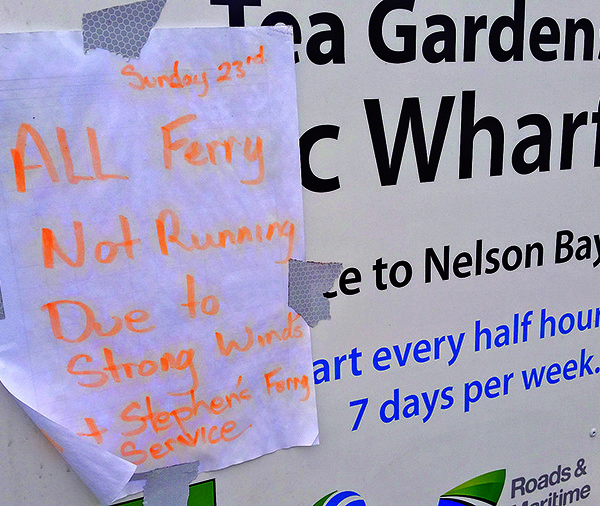 Sunday 23rd
ALL Ferry
Not Running
Due to
Strong Winds
Stephen's Ferry
Service
Tea Gardens
c Wharf
to Nelson Bay
art every half hour
7 days per week.
Roads &
Maritime